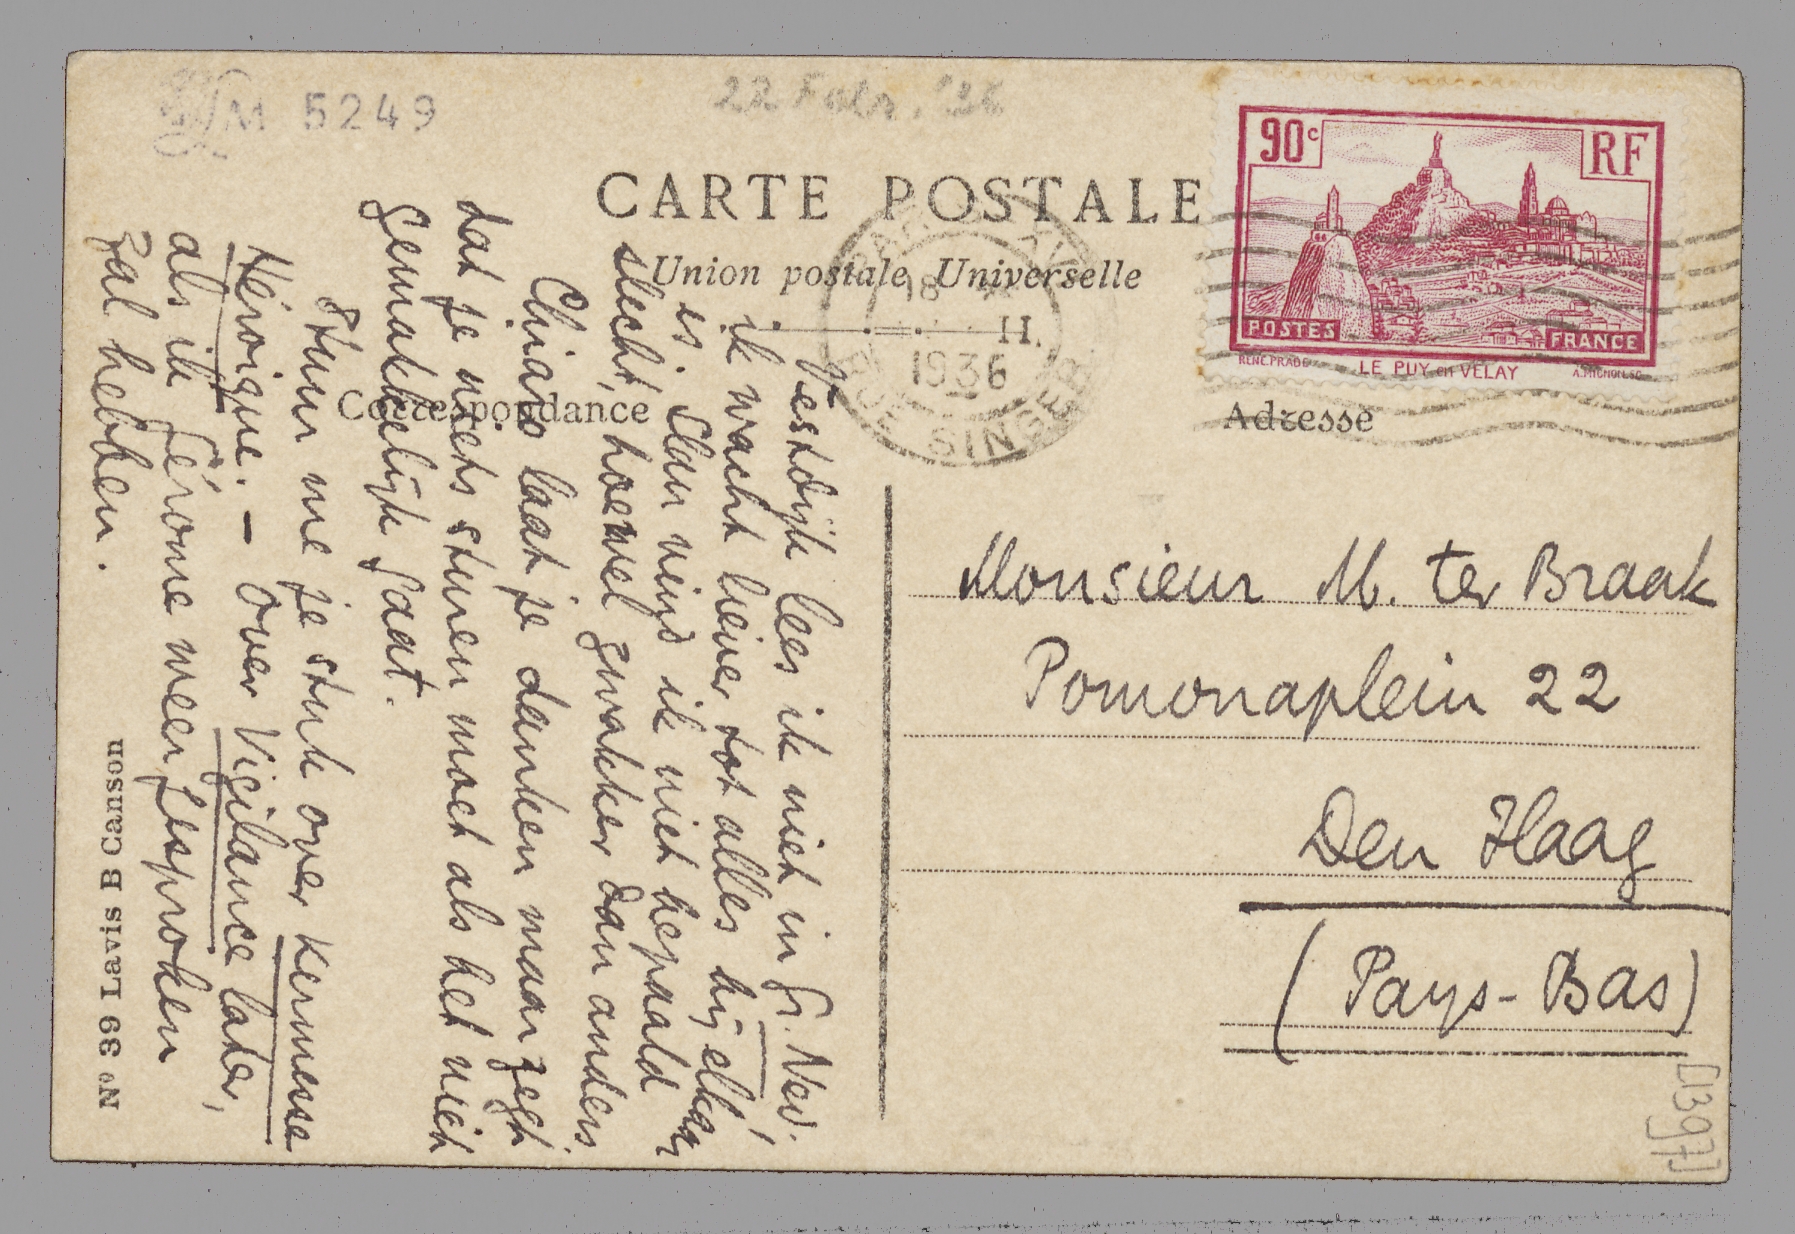 M 5249
22 Febr. '36
CARTE POSTALE
Union postale Universelle
Correspondance
Adresse
90c
RF
POSTES
FRANCE
RENE PRADE
LE PUY en VELAY
PARIS XVI
18
H.
1936
RUE SINGER
Vestdijk lees ik niet in Gr. Ned.
ik wacht liever tot alles bij elkaar
is. Slau vind ik niet bepaald
slecht, hoewel zwakker dan anders.
Chiaro laat je danken maar zegt
dat je niets sturen moet als het niet
gemakkelijk gaat.
Stuur me je stuk over Kermesse
Héroïque. — Over Vigilance later,
als ik Gérome weer gesproken
zal hebben.
No 39 Lavis B Canson
Monsieur M. ter Braak
Pomonaplein 22
Den Haag
(Pays-Bas)
[1397]